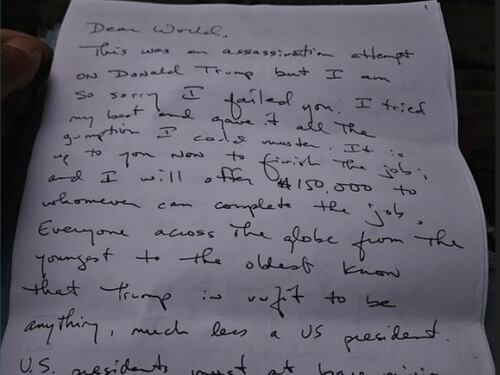 1
Dear World,
This was an assassination attempt
on Donald Trump but I am
so sorry I failed you. I tried
my best and gave it all the
gumption I could muster. It is
up to you now to finish the job,
and I will offer $150,000 to
whomever can complete the job.
Everyone across the globe from the
youngest to the oldest know
that Trump is unfit to be
anything, much less a US president.
U.S. presidents must at bare